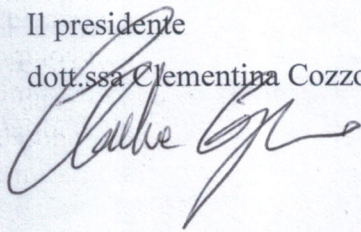 Il presidente
dott.ssa Clementina Cozzo